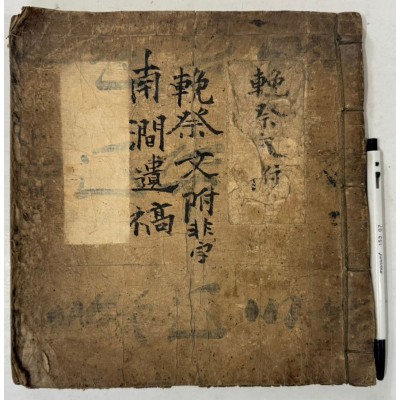 輓祭文附
輓祭文附非
南澗遺稿